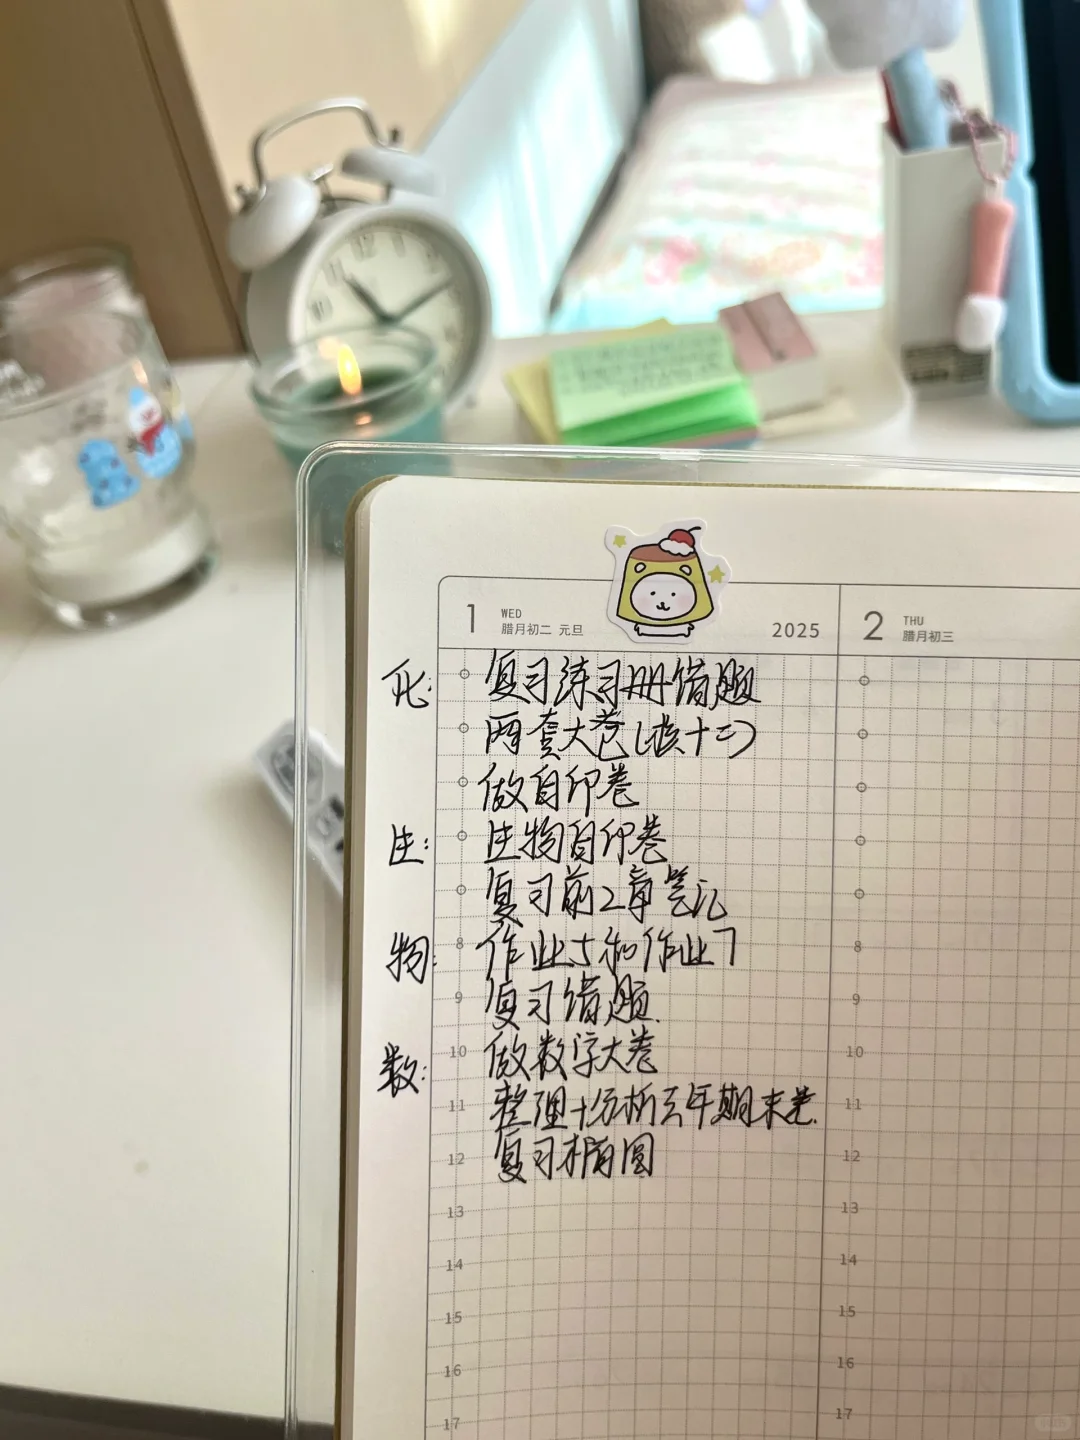 12
11
10
2
1 WED 腊月初二 元旦 2025
2 THU 腊月初三
化: 复习练习册错题
两套大卷(十二)
做自印卷
生: 生物自印卷
复习前2章笔记
物: 8 作业5和作业7
9 复习错题.
数: 10 做数学大卷
11 整理+分析去年期末卷.
12 复习椭圆
13
14
15
16
17
8
9
10
11
12
13
14
15
16
17